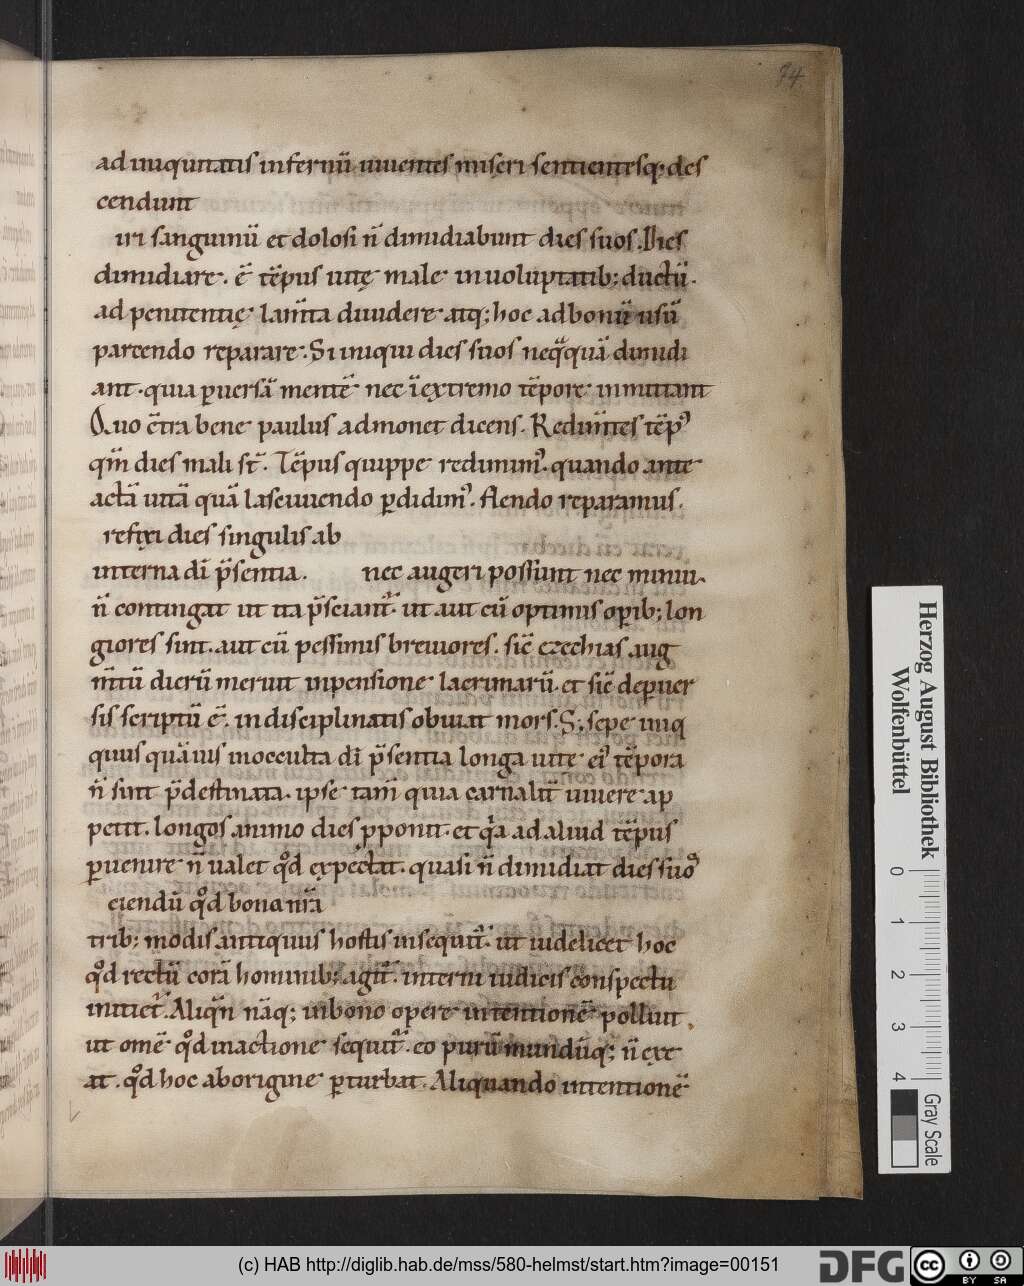 74
ad iniquitatis infernū uiuentes miseri sentientesq; des
cendunt
iri sanguinū et dolosi n̄ dimidiabunt dies suos. Dies
dimidiare. ē tēpus uitę male in uoluptatib; ductū.
ad penitentię lam̄ta diuidere atq; hoc ad bonū usū
parcendo reparare. Si iniqui dies suos neq̄quā dimidi
ant. quia ꝑuersā mentē nec ī extremo tēpore inmutant
Quo cͣ̄tra bene paulus admonet dicens. Redim̄tes tēpꝰ
qm̄ dies mali st̄. Tēpus quippe redimimꝰ. quando ante
actā uitā quā lasciuiendo ꝑdidimꝰ. flendo reparamus.
refixi dies singulis ab
interna dī p̄sentia. nec augeri possunt nec minui.
n̄ contingat ut ita p̄sciant᷑. ut aut cū optimis oꝑib; lon
giores sint. aut cū pessimis breuiores. sic̄ ezechias aug
m̄tū dierū meruit inpensione lacrimarū. et sic̄ deꝑuer
sis scriptū ē. indisciplinatis obuiat mors. S; sepe iniq
quus quāuis inocculta dī p̄sentia longa uite eiꝰ tēpora
n̄ sint p̄destinata. ipse tam̄ quia carnalit̄ uiuere ap
petit. longos animo dies ꝓponit. et qͣa ad aliud tēpus
ꝑuenire n̄ ualet qͦd expectat. quasi n̄ dimidiat dies suoꝰ
ciendū qͦd bona nr̄a
trib; modis antiquus hostis insequit᷑. ut uidelicet hoc
qͦd rectū corā hominib; agit᷑. interni iudicis conspectu
uitiet᷑. Aliqn̄ nāq; inbono opere intentionē polluit.
ut om̄e qͦd inactione sequit᷑. eo purū mundūq; n̄ exe
at. qͦd hoc aborigine ꝑturbat. Aliquando intentionē
Herzog August Bibliothek
Wolfenbüttel
0 1 2 3 4
Gray Scale
(c) HAB http://diglib.hab.de/mss/580-helmst/start.htm?image=00151
DFG
cc BY SA